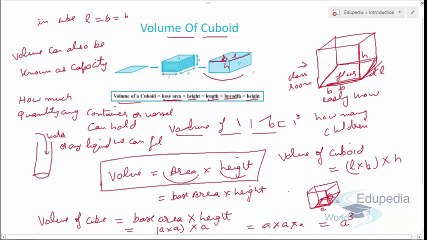 Edupedia > Introduction
in cube l = b = h
Volume Of Cuboid
Volume can also be
known as capacity
class
room
floor
l
b
b
h
Volume of a Cuboid = base area × height = length × breadth × height
How much
quantity any container or vessel
can hold
water
or any liquid we can fill
easily know
how many
children
Volume of cuboid
= (l×b) × h
Volume = Area × height
= base Area × height
Volume of cube = base area × height
= (a×a) × a = a×a×a = a³
a
Edupedia
World